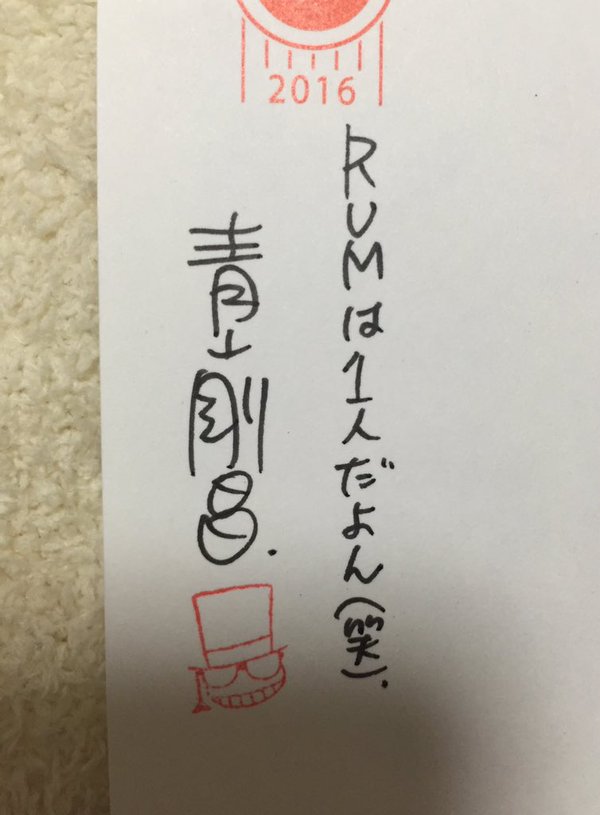 2016
RUMは1人だよん(笑).
青山剛昌.